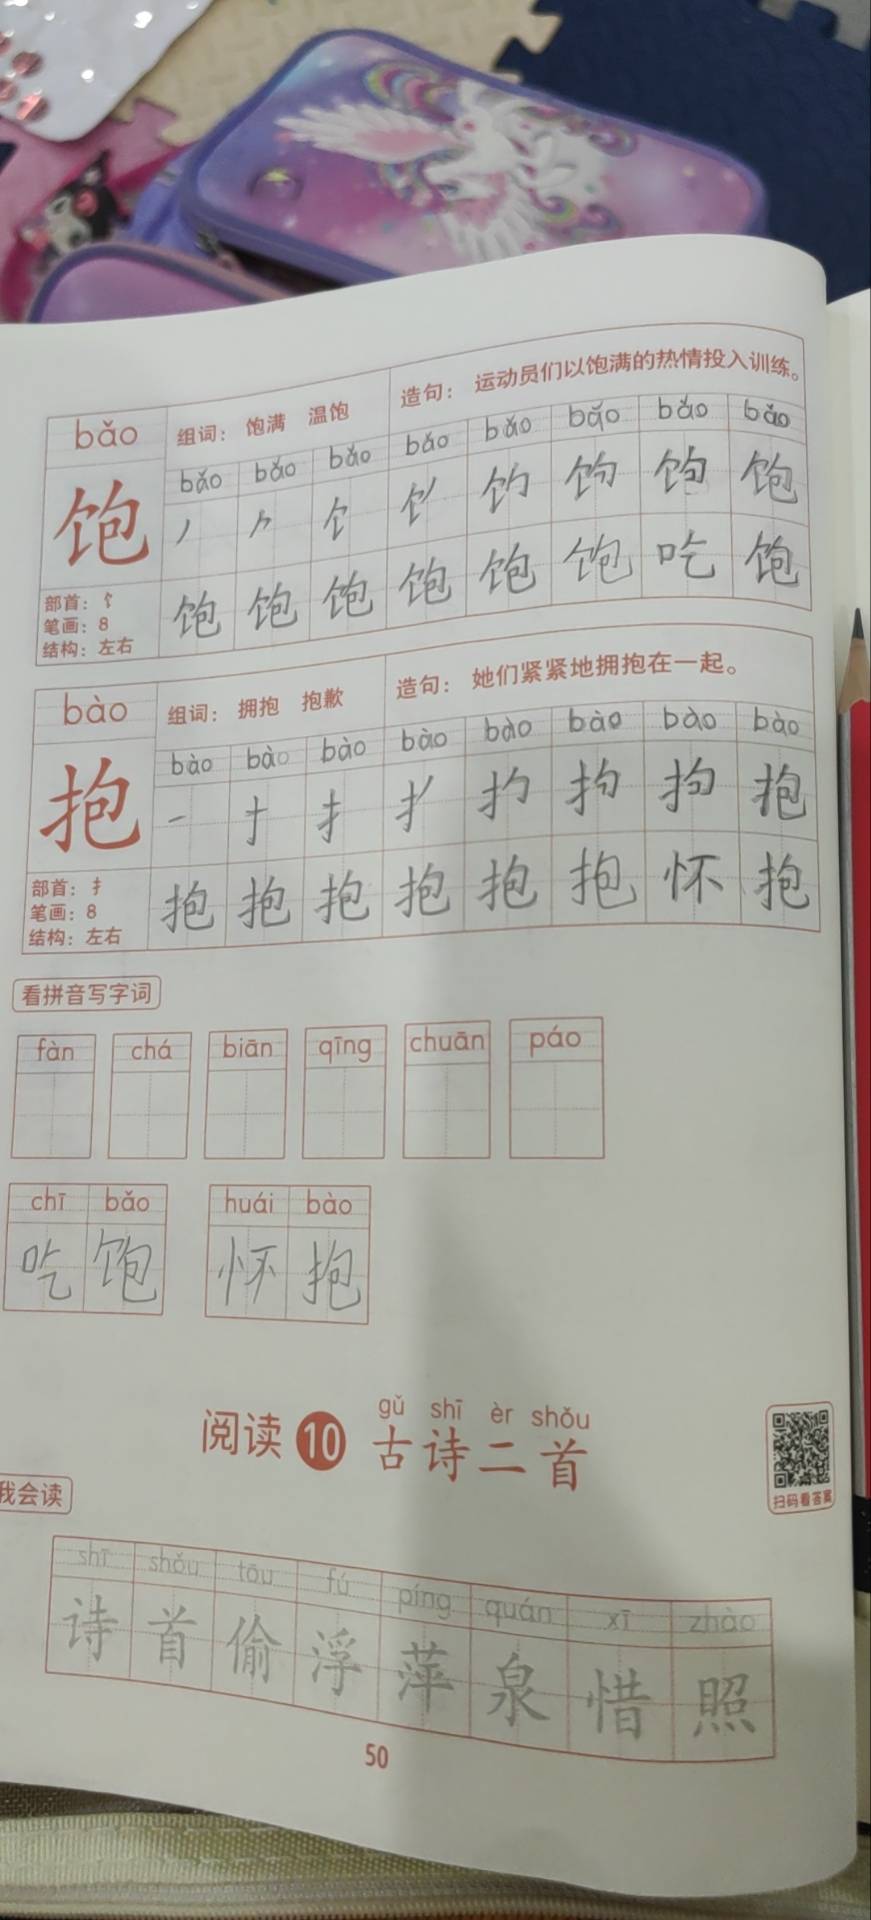 bǎo 组词： 饱满 温饱 造句： 运动员们以饱满的热情投入训练。
bǎo bǎo bǎo bǎo bǎo bǎo bǎo bǎo
饱
饱
部首：饣
笔画：8
结构：左右
饱 饱 饱 饱 饱 饱 吃 饱
bào 组词： 拥抱 抱歉 造句： 她们紧紧地拥抱在一起。
bào bào bào bào bào bào bào bào
抱
一 扌 抱
部首：扌
笔画：8
结构：左右
抱 抱 抱 抱 抱 抱 怀 抱
看拼音写字词
fàn chá biān qīng chuān páo
chī bǎo huái bào
吃饱 怀抱
gǔ shī èr shǒu
阅读 10 古诗二首
扫码看答案
我会读
shī shǒu tōu fú píng quán xī zhào
诗 首 偷 浮 萍 泉 惜 照
50